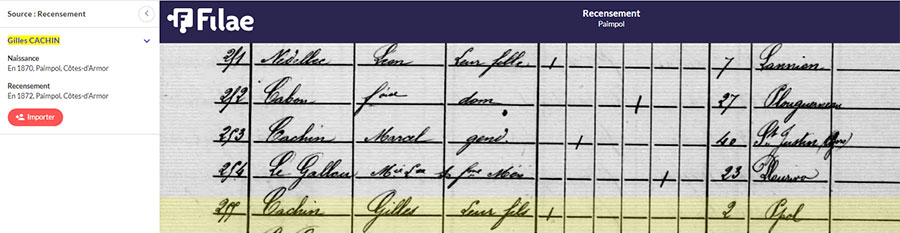 Source : Recensement
Gilles CACHIN
Naissance
En 1870, Paimpol, Côtes-d'Armor
Recensement
En 1872, Paimpol, Côtes-d'Armor
Importer
Filae
Recensement
Paimpol
251 Nédellec Léon Leur fils 1 7 Lannion
252 Cabon dom. 1 27
253 Cachin Marcel gend. 1 40 St Justin
254 Le Gallou 1 23
255 Cachin Gilles Leur fils 1 2 Ppol